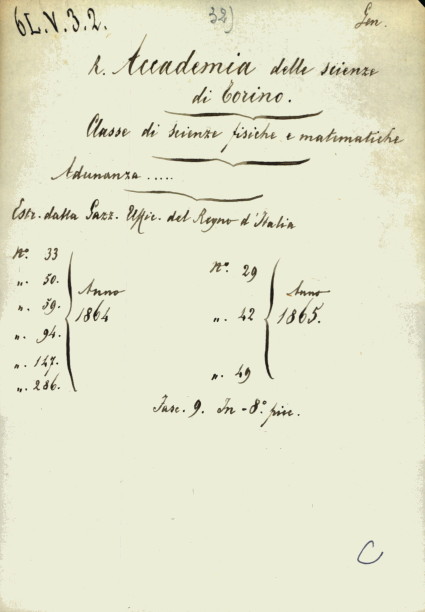 6L.V.3.2.
32)
Gen.
R. Accademia delle scienze
di Torino.
Classe di scienze fisiche e matematiche
Adunanza .....
Estr. dalla Gazz. Uffic. del Regno d'Italia
N.° 33
". 50.
". 59.
". 94.
". 147.
". 286.
Anno
1864
N.° 29
". 42
". 49
Anno
1865.
Fasc. 9. In-8.° picc.
C